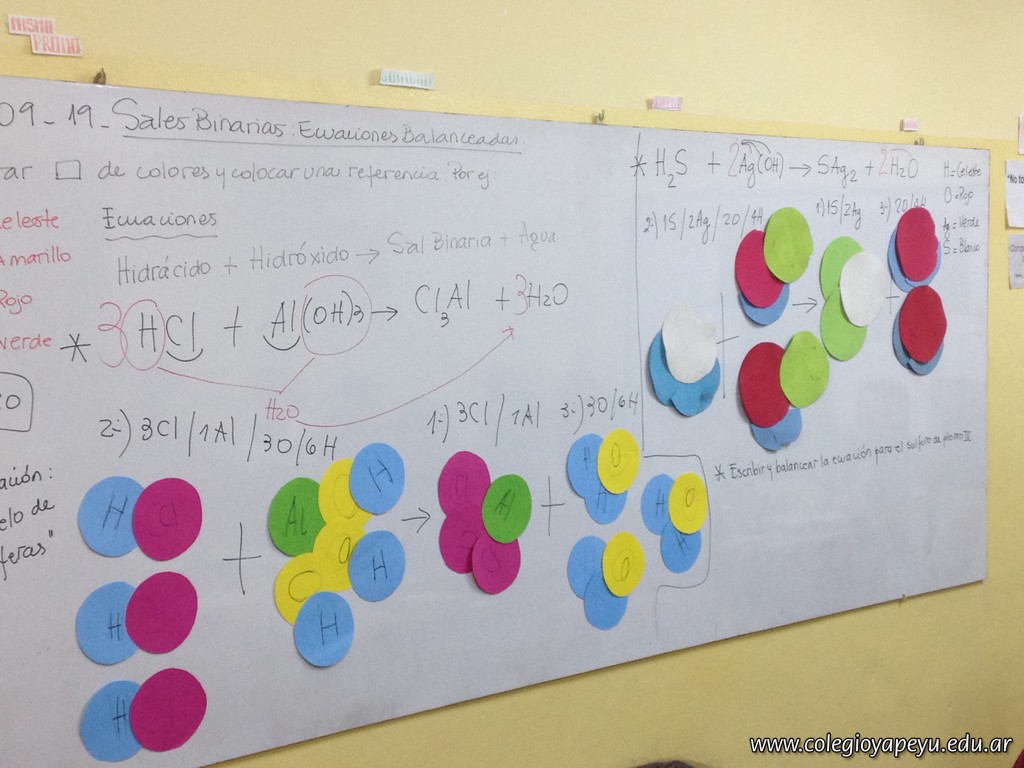 MISMA
PROMO
09-19- Sales Binarias: Ecuaciones Balanceadas
ar □ de colores y colocar una referencia. Por ej:
eleste
Amarillo
Rojo
Verde
Ecuaciones
Hidrácido + Hidróxido → Sal Binaria + Agua
* 3HCl + Al(OH)3 → Cl3Al + 3H2O
H2O
2-) 3Cl/1Al/3O/6H
1-) 3Cl/1Al
3-) 3O/6H
ación:
elo de
feras"
H Cl
H
H
+
Al O H
O H
O
H
→
Cl Al
+
O
H
O
O
H
* H2S + 2Ag(OH) → SAg2 + 2H2O
2-) 1S/2Ag/2O/4H
1-) 1S/2Ag
3-) 2O/4H
H=Celeste
O=Rojo
Ag=Verde
S=Blanco
+ → +
* Escribir y balancear la ecuación para el sulfuro de plomo IV
"No to
www.colegioyapeyu.edu.ar